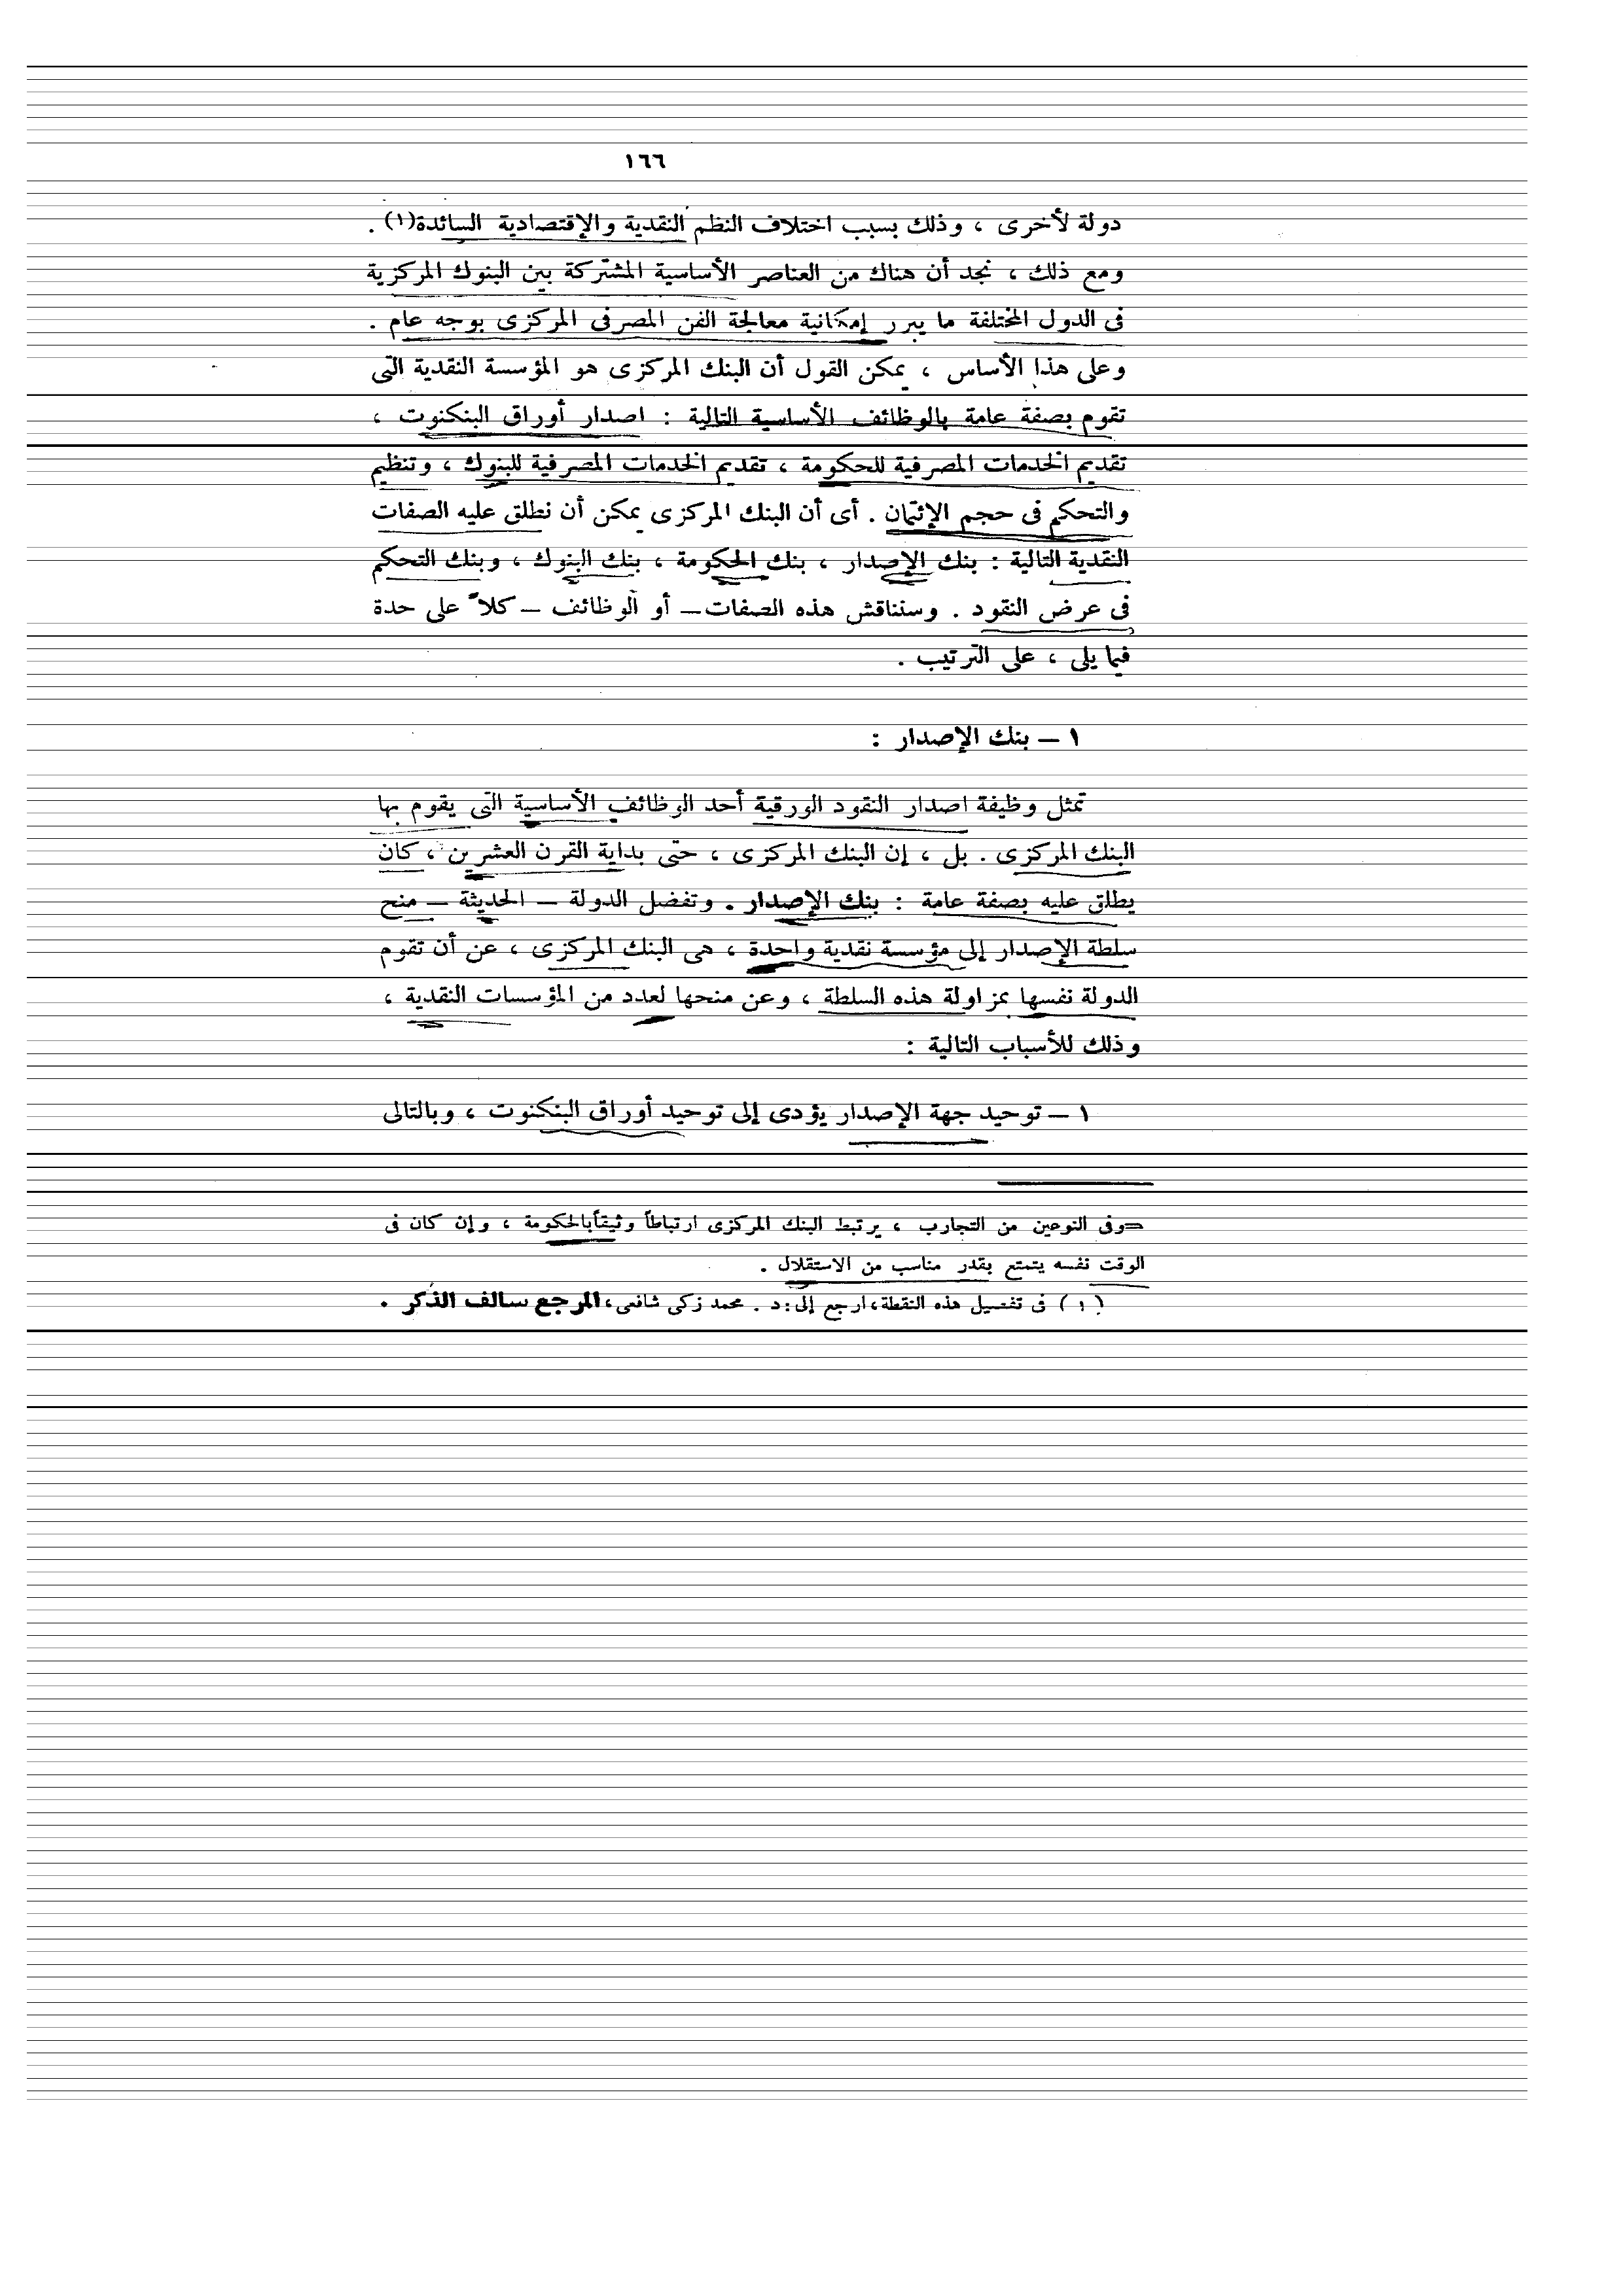 ١٦٦
دولة لأخرى ، وذلك بسبب اختلاف النظم النقدية والإقتصادية السائدة(١) .
ومع ذلك ، نجد أن هناك من العناصر الأساسية المشتركة بين البنوك المركزية
فى الدول المختلفة ما يبرر إمكانية معالجة الفن المصرفى المركزى بوجه عام .
وعلى هذا الأساس ، يمكن القول أن البنك المركزى هو المؤسسة النقدية التى
تقوم بصفة عامة بالوظائف الأساسية التالية : اصدار أوراق البنكنوت ،
تقديم الخدمات المصرفية للحكومة ، تقديم الخدمات المصرفية للبنوك ، وتنظيم
والتحكم فى حجم الإئتمان . أى أن البنك المركزى يمكن أن نطلق عليه الصفات
النقدية التالية : بنك الإصدار ، بنك الحكومة ، بنك البنوك ، وبنك التحكم
فى عرض النقود . وسنناقش هذه الصفات – أو الوظائف – كلاً على حدة
فيما يلى ، على الترتيب .
١ – بنك الإصدار :
تمثل وظيفة اصدار النقود الورقية أحد الوظائف الأساسية التى يقوم بها
البنك المركزى . بل ، إن البنك المركزى ، حتى بداية القرن العشرين ، كان
يطلق عليه بصفة عامة : بنك الإصدار . وتفضل الدولة – الحديثة – منح
سلطة الإصدار إلى مؤسسة نقدية واحدة ، هى البنك المركزى ، عن أن تقوم
الدولة نفسها بمزاولة هذه السلطة ، وعن منحها لعدد من المؤسسات النقدية ،
وذلك للأسباب التالية :
١ – توحيد جهة الإصدار يؤدى إلى توحيد أوراق البنكنوت ، وبالتالى
=وفى النوعين من التجارب ، يرتبط البنك المركزى ارتباطاً وثيقاً بالحكومة ، وإن كان فى
الوقت نفسه يتمتع بقدر مناسب من الاستقلال .
(١) فى تفصيل هذه النقطة، ارجع إلى: د . محمد زكى شافعى، المرجع سالف الذكر .